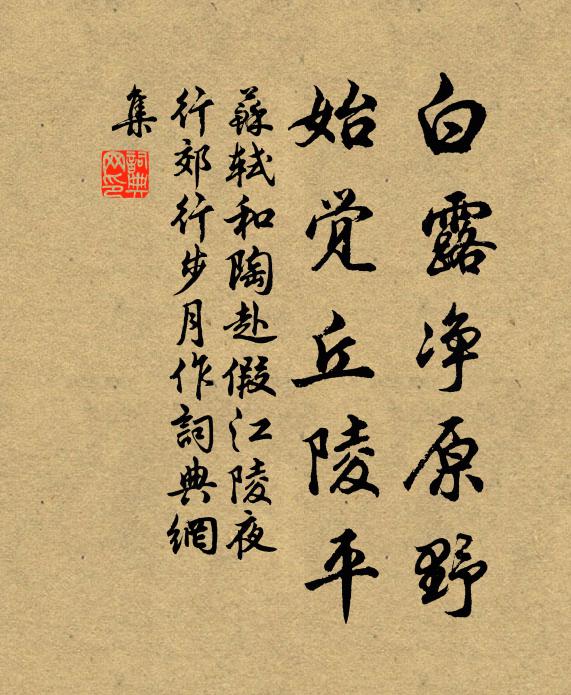 白露净原野
始觉丘陵平
蘇軾和陶赴假江陵夜
行郊行步月作詞典網
集
詞典网印